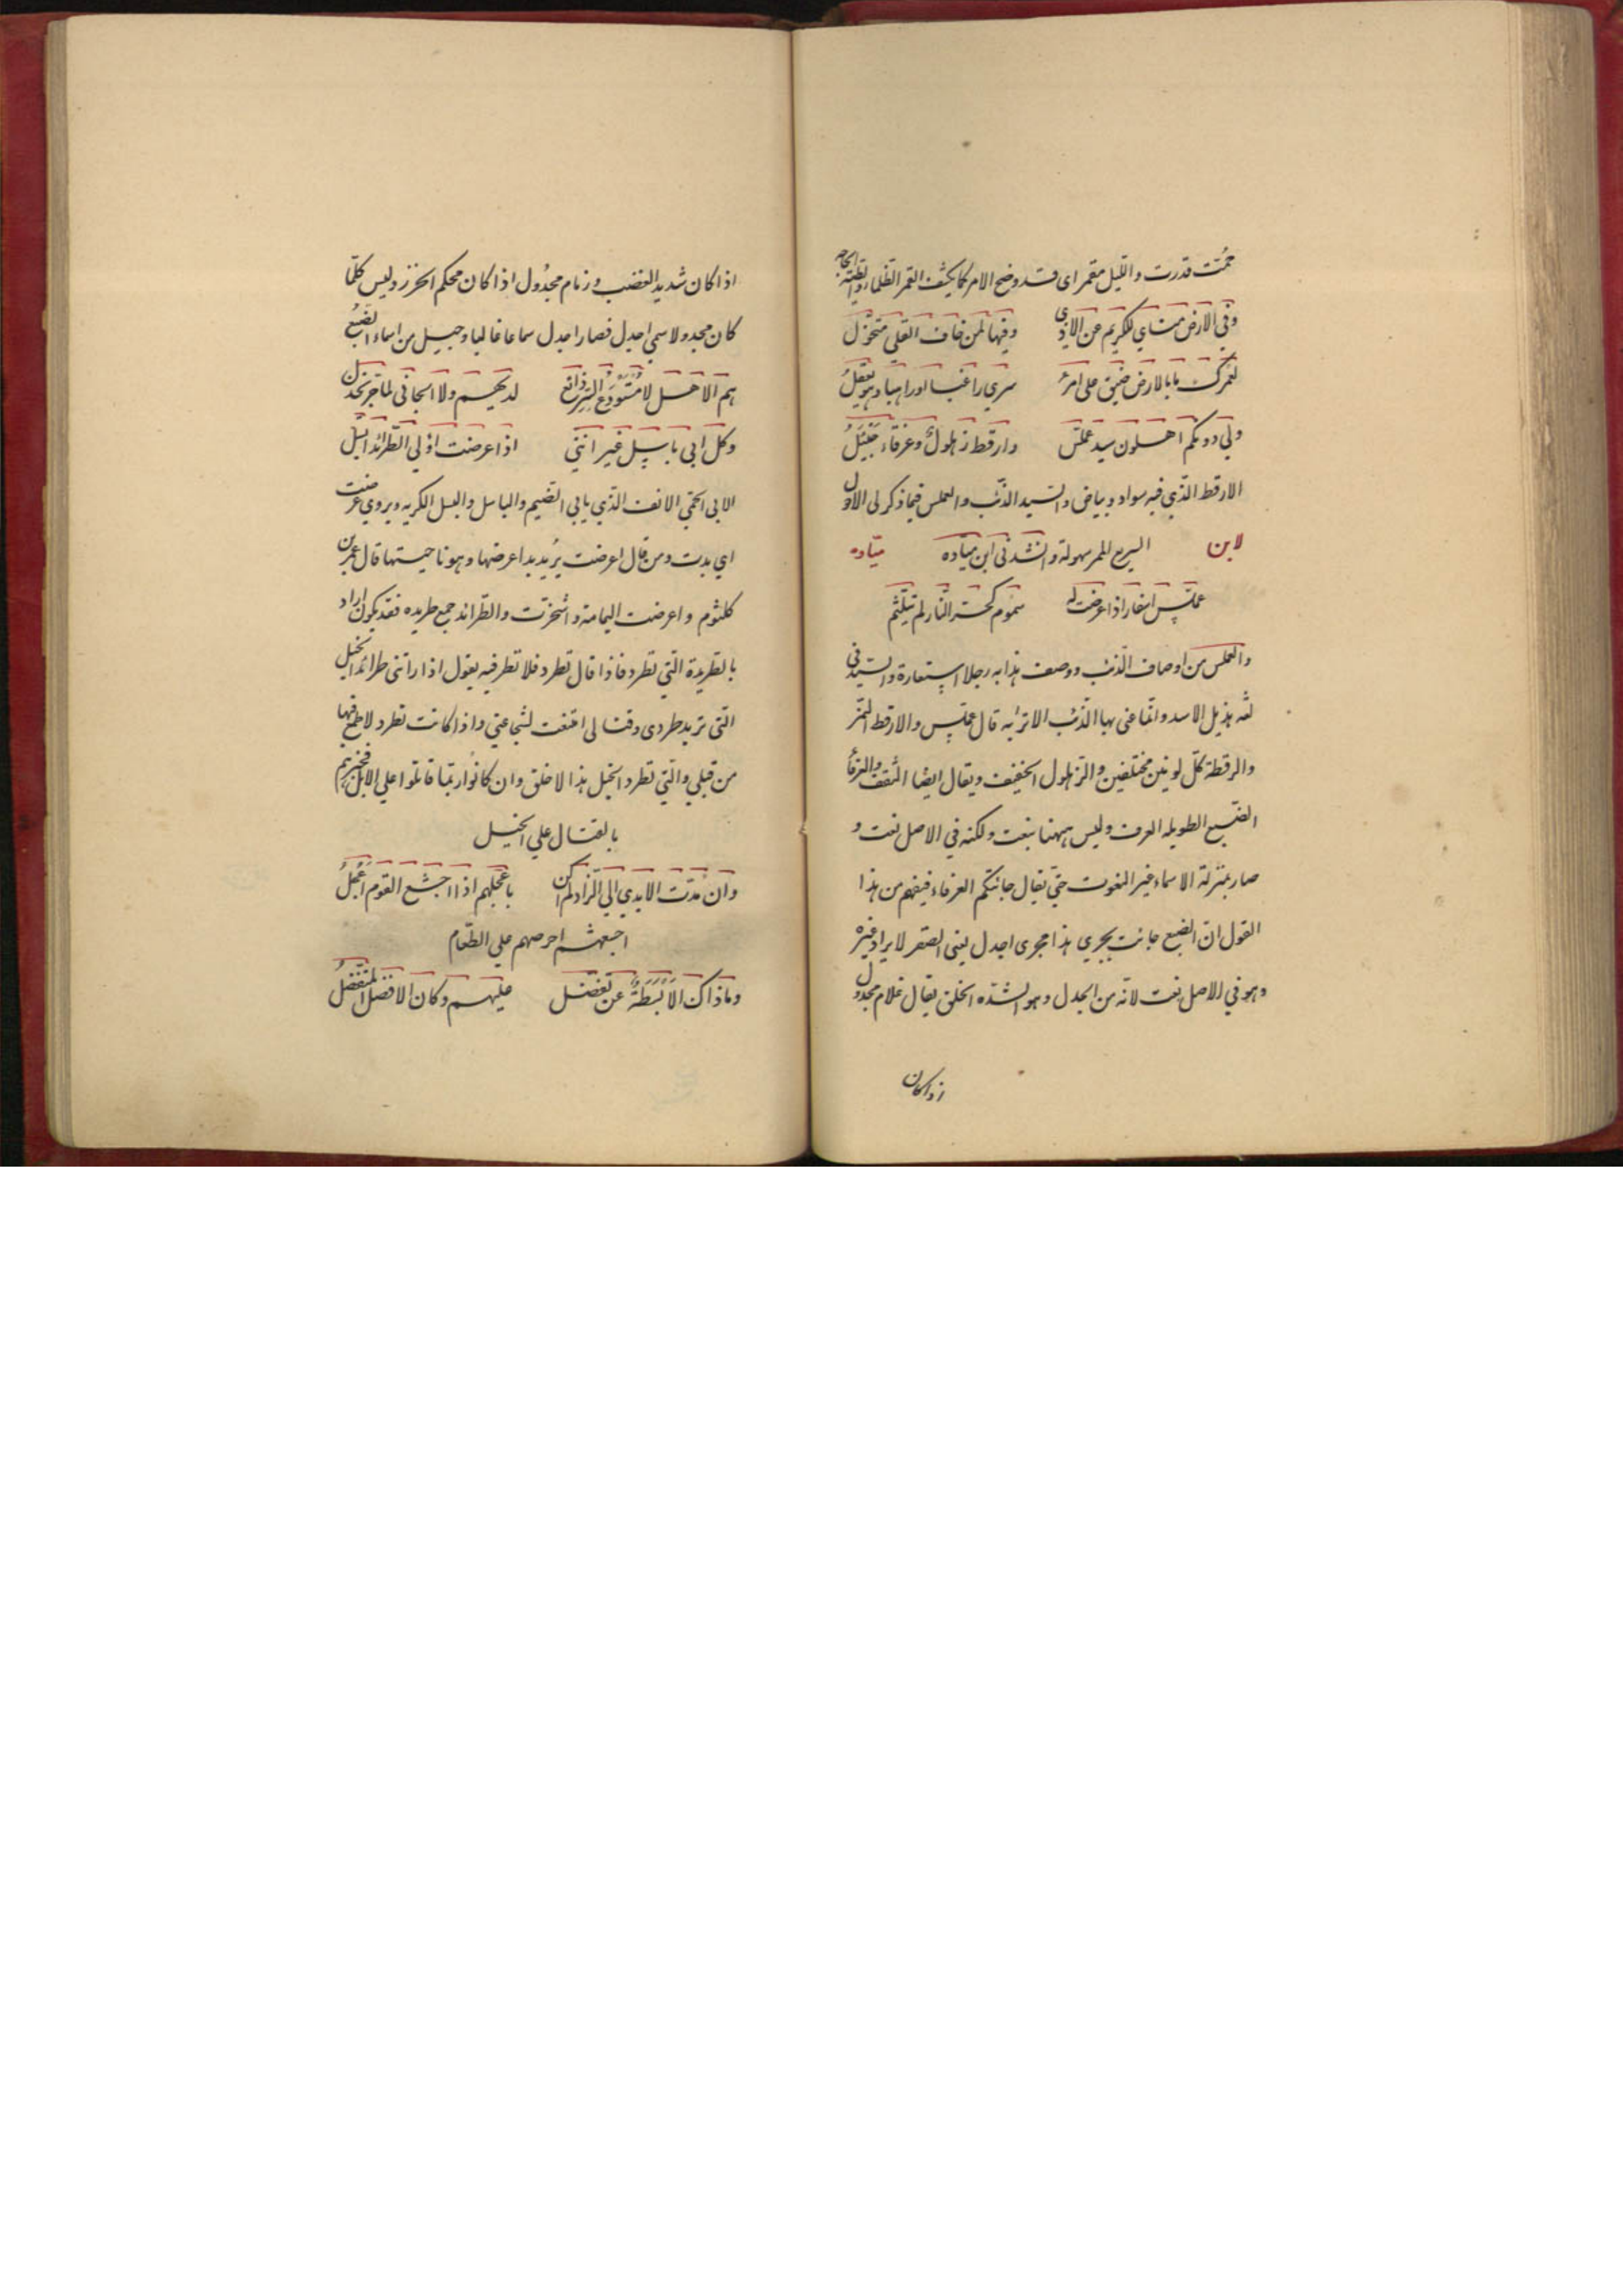 حُمّت قدرت واللّيل مقمر اى قد وضح الامر كما يكشف القمر الظلماء والطية الحاجه
وفي الارض مناي للكريم عن الاذي وفيها لمن خاف القلي متحوّل
لعمرك ما بالارض ضيق على امرئ سري راغبا او راهبا وهو يعقلُ
ولي دونكم اهلون سيد عملّس وارقط زهلولٌ وعرفاء جيئلُ
الارقط الذي فيه سواد وبياض والسيد الذئب والعملس فيما ذكر لى الاول
لابن السريع الممر سهولة وانشدنى ابن ميّاده ميّاده
عملّس اسفار اذا اعرضت له سموم كحرّ النار لم يتلثّم
والعملس من اوصاف الذئب ووصف هذا به رجلا استعارة والسيد فى
لغه هذيل الاسد وانما عنى بها الذئب الا تراه قال عملّس والارقط النمر
والرقطة كلّ لونين مختلفين والزهلول الخفيف ويقال ايضا والعرفاءُ
الضبع الطويله العرف وليس ههنا بنعت ولكنه في الاصل نعت و
صار بمنزلة الاسماء غير النعوت حتي يقال جائتكم العرفاء فيفهم من هذا
القول ان الضبع جائت يجري هذا مجرى اجدل يعنى الصقر لا يراد غيره
وهو في الاصل نعت لانّه من الجدل وهو الشده الخلق يقال غلام مجدول
اذا كان
اذا كان شديد العضب وزمام مجدُول اذا كان محكم الخرز وليس كلّما
كان مجدولا سمي اجدل فصار اجدل سماعا غالبا وجيئل من اسماء الضبُع
هم الاهل لا مُستَودَعُ السّرِ ذائع لديهم ولا الجانى لما جرّ يخذل
وكل ابى باسل غير انني اذا عرضت اولي الطرائد ابسل
الابى الحمّى الانف الذي يابى الضيم والباسل والبسل الكريه ويروي عرضت
اي بدت ومن قال اعرضت يُريد بدا عرضها وهو ناحيتها قال عمرو بن
كلثوم واعرضت اليمامة واشمخرّت والطرائد جمع طريده فقد يكون اراد
بالطريدة التي تطرد فاذا قال تطرد فلا تطر فيه يقول اذا راتنى طرائد الخيل
التى تريد طردى وقتالى امتنعت لشجاعتي واذا كانت تطرد لا طمع فيها
من قبلي والتي تطرد الخيل هذا لا خلق وان كانُوا ربّما قاتلوا علي الابل فخبرهم
بالقتال علي الخيل
وان مُدّت الايدي الي الزاد لم اكن باَعجَلِهم اذا اجشع القوم اَعْجَلُ
اجشهم احرصهم على الطعام
وما ذاك الاّ بَسَطةٌ عن تفضّل عليهم وكان الافضل المتفضّلُ